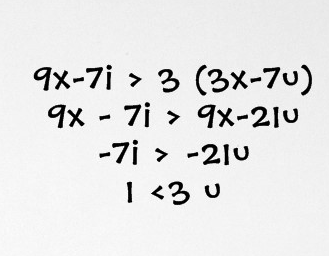 9x-7i > 3 (3x-7u)
9x - 7i > 9x-21u
-7i > -21u
i <3 u